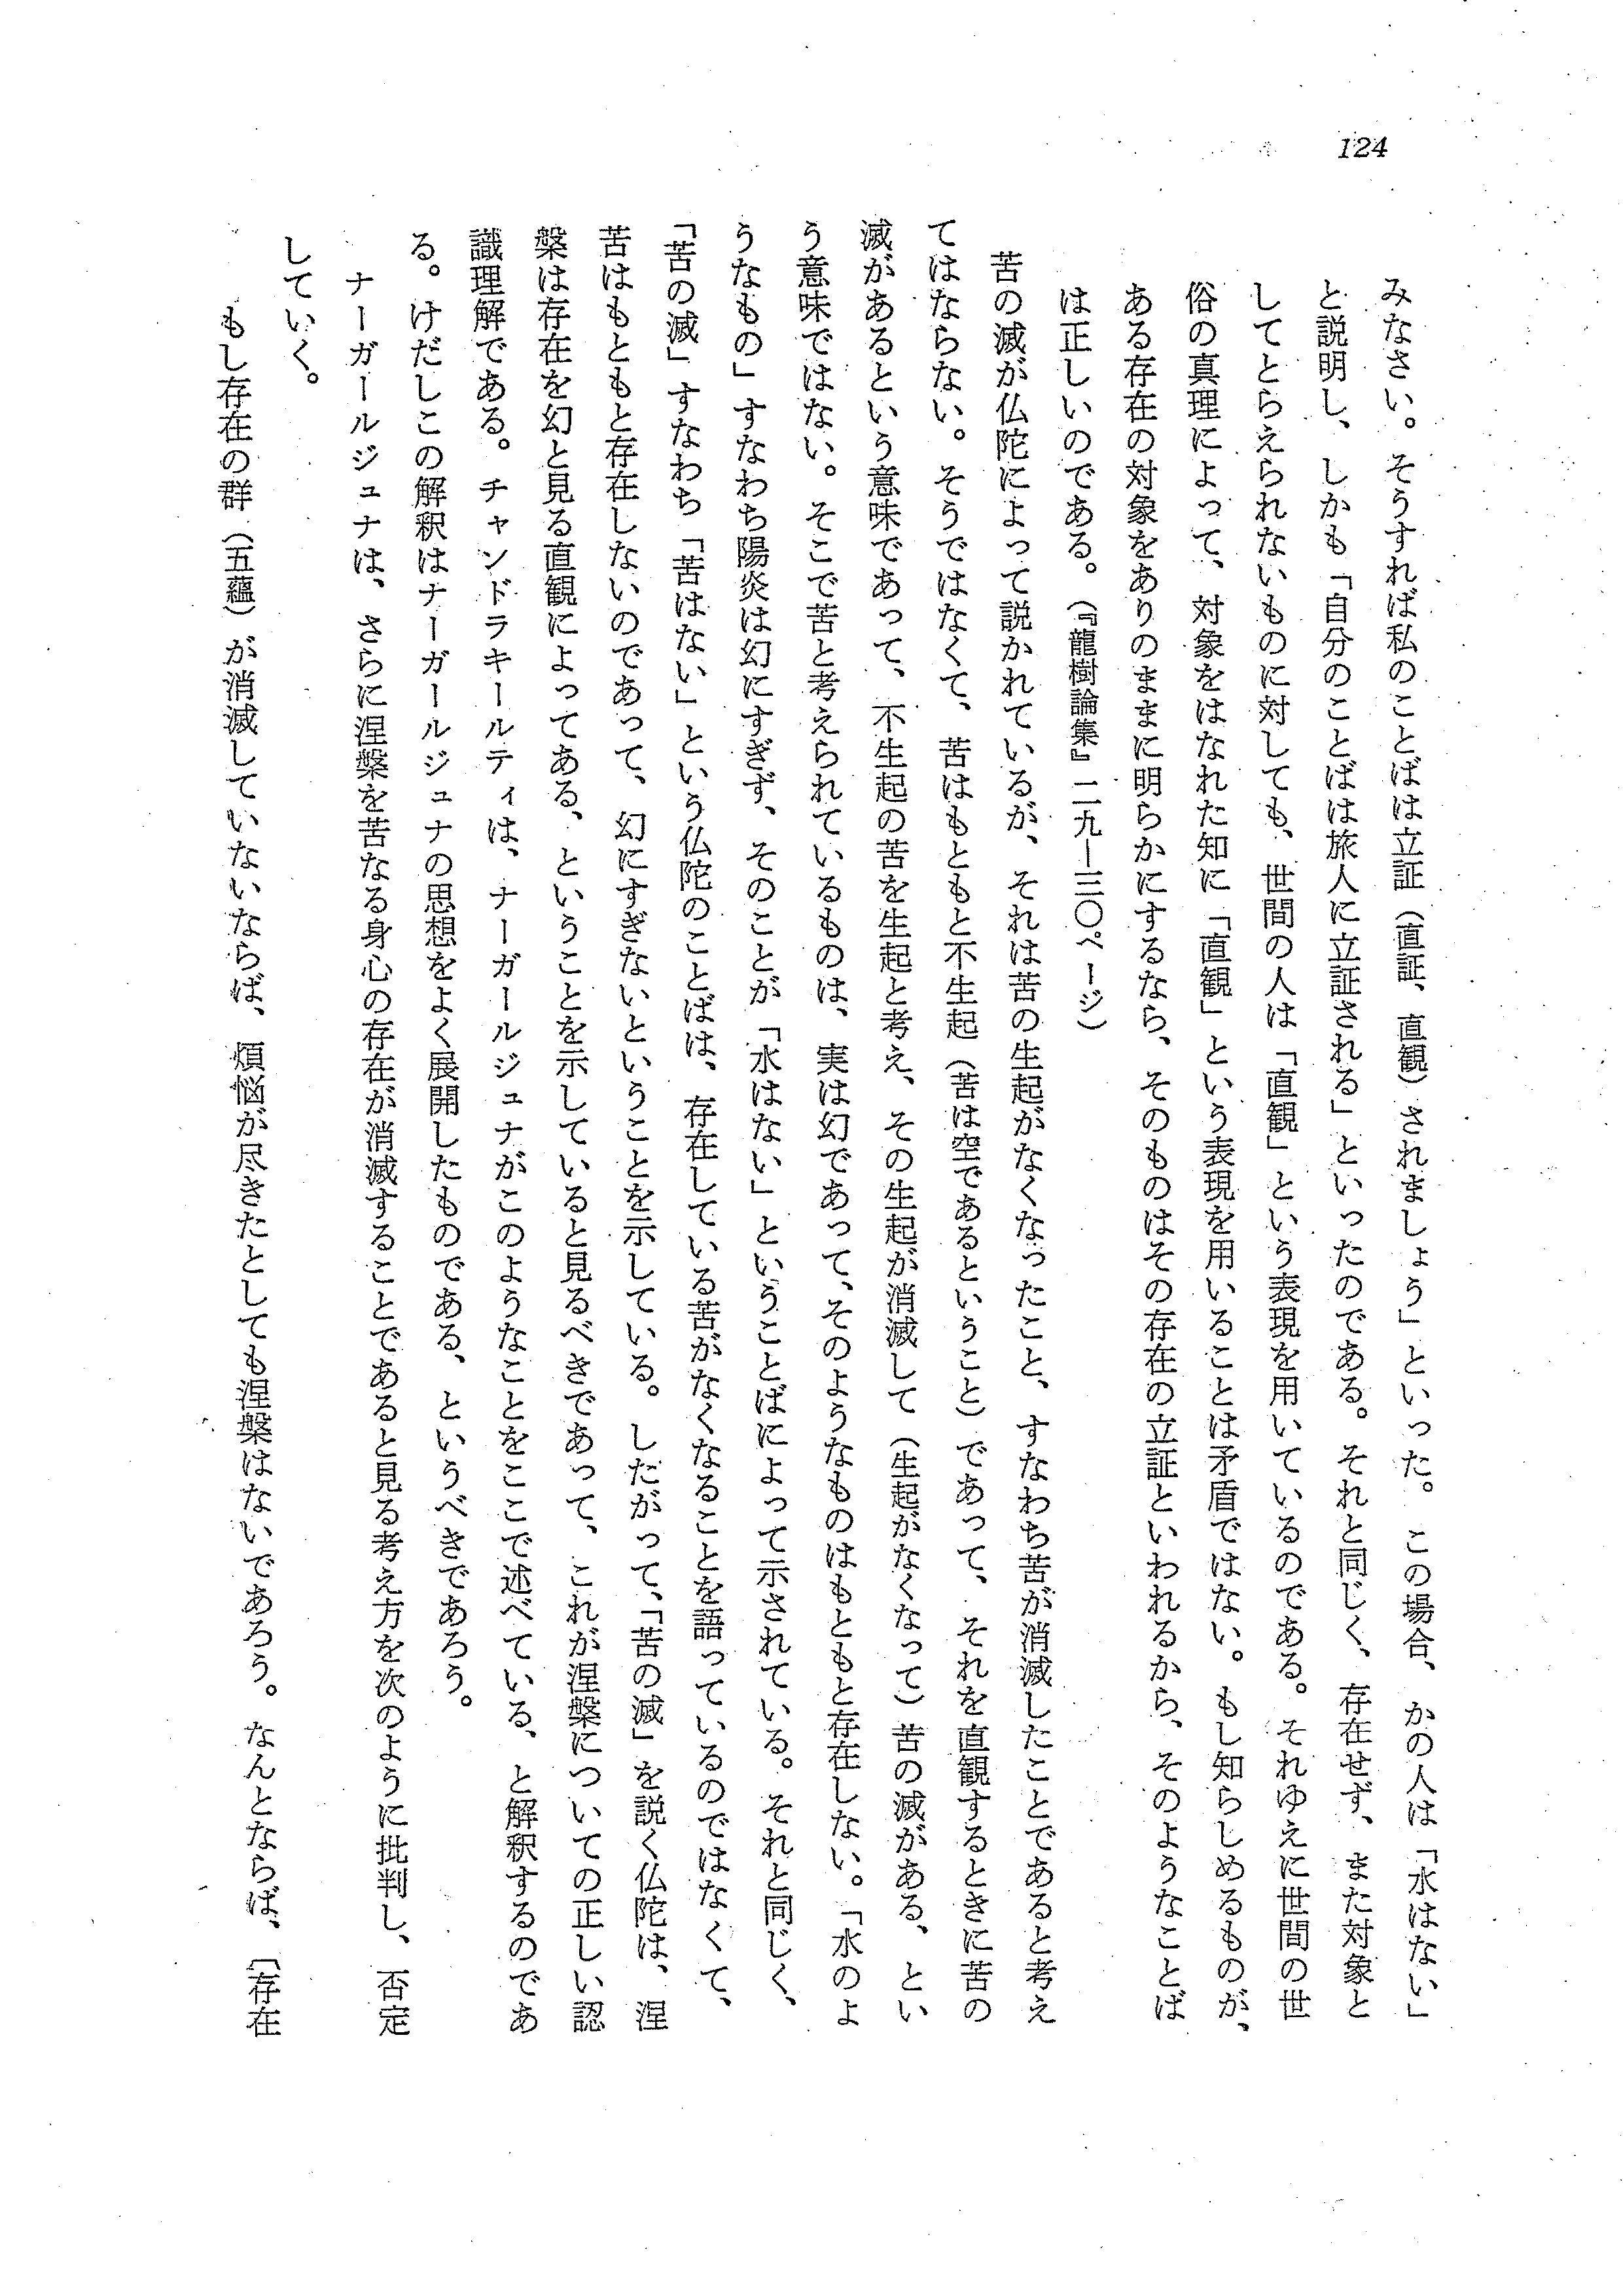 124
みなさい。そうすれば私のことばは立証（直証、直観）されましょう」といった。この場合、かの人は「水はない」
と説明し、しかも「自分のことばは旅人に立証される」といったのである。それと同じく、存在せず、また対象と
してとらえられないものに対しても、世間の人は「直観」という表現を用いているのである。それゆえに世間の世
俗の真理によって、対象をはなれた知に「直観」という表現を用いることは矛盾ではない。もし知らしめるものが、
ある存在の対象をありのままに明らかにするなら、そのものはその存在の立証といわれるから、そのようなことば
は正しいのである。（『龍樹論集』二九―三〇ページ）
苦の滅が仏陀によって説かれているが、それは苦の生起がなくなったこと、すなわち苦が消滅したことであると考え
てはならない。そうではなくて、苦はもともと不生起（苦は空であるということ）であって、それを直観するときに苦の
滅があるという意味であって、不生起の苦を生起と考え、その生起が消滅して（生起がなくなって）苦の滅がある、とい
う意味ではない。そこで苦と考えられているものは、実は幻であって、そのようなものはもともと存在しない。「水のよ
うなもの」すなわち陽炎は幻にすぎず、そのことが「水はない」ということばによって示されている。それと同じく、
「苦の滅」すなわち「苦はない」という仏陀のことばは、存在している苦がなくなることを語っているのではなくて、
苦はもともと存在しないのであって、幻にすぎないということを示している。したがって、「苦の滅」を説く仏陀は、涅
槃は存在を幻と見る直観によってある、ということを示していると見るべきであって、これが涅槃についての正しい認
識理解である。チャンドラキールティは、ナーガールジュナがこのようなことをここで述べている、と解釈するのであ
る。けだしこの解釈はナーガールジュナの思想をよく展開したものである、というべきであろう。
ナーガールジュナは、さらに涅槃を苦なる身心の存在が消滅することであると見る考え方を次のように批判し、否定
していく。
もし存在の群（五蘊）が消滅していないならば、煩悩が尽きたとしても涅槃はないであろう。なんとならば、〔存在